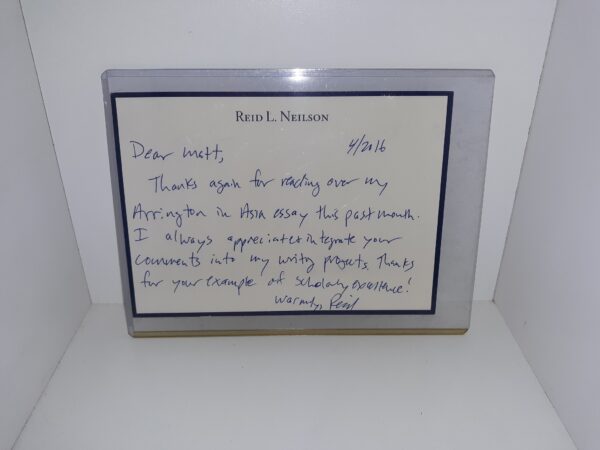 REID L. NEILSON
Dear Matt, 4/2016
Thanks again for reading over my
Arrington in Asia essay this past month.
I always appreciate + integrate your
comments into my writing projects. Thanks
for your example of scholarly excellence!
Warmly, Reid